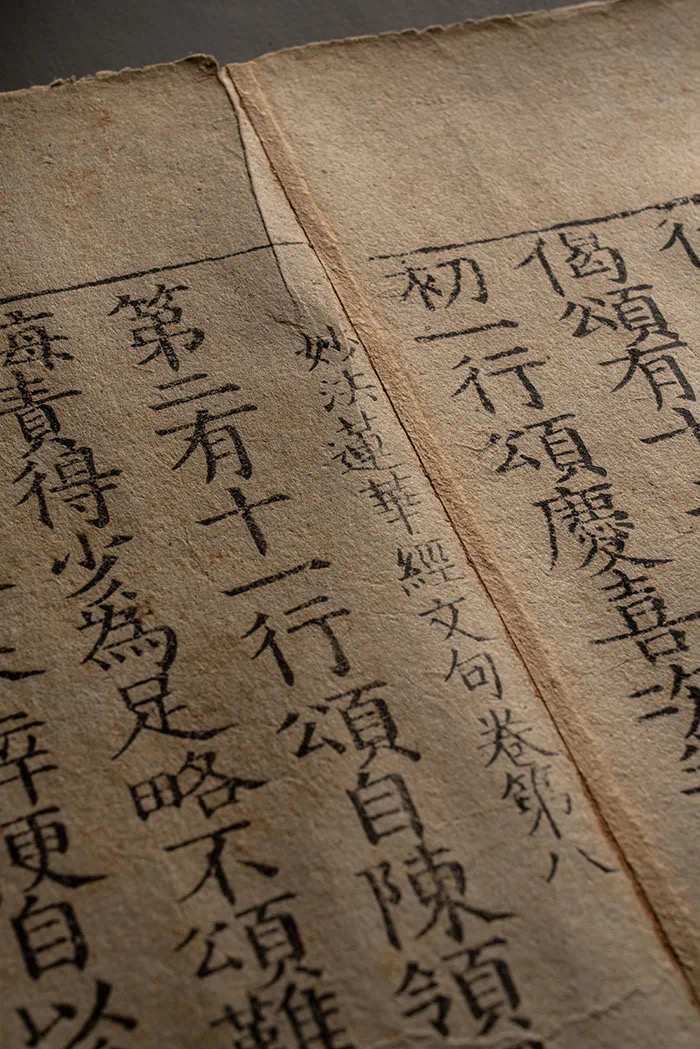 偈頌有十
初一行頌慶喜
妙法蓮華經文句卷第八
第二有十一行頌自陳領
悔責得少為足略不頌難
自